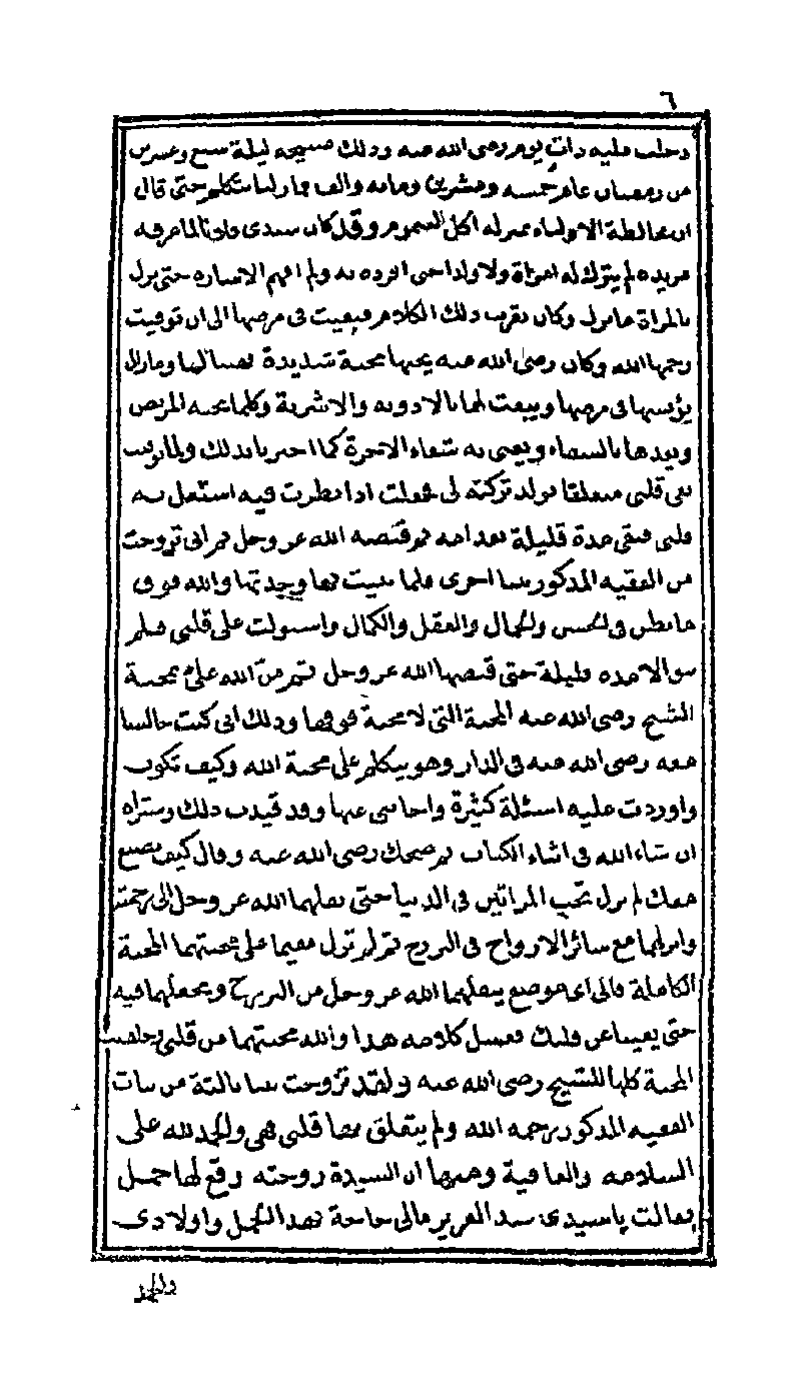 ٦
دخلت عليه ذات يوم رضي الله عنه وذلك صبيحه ليلة سبع وعشرين
من رمضان عام خمسه وعشرين ومايه والف فما زلنا نتكلم حتى قال
ان مخالطة الاولياء بمنزله اكل السموم وقد كان سيدى فلان لما عرفه
مريده لم يترك له امراة ولا ولدا حتى افرده به ولم افهم الاشاره حتى نزل
بالمراة ما نزل وكان بقرب ذلك الكلام فبقيت فى مرضها الى ان توفيت
رحمها الله وكان رضي الله عنه يحبها محبة شديدة وما زال
يؤنسها فى مرضها ويبعث لها بالادويه والاشربة وكلما يحبه المريض
ويعدها بالشفاء ويعنى به شفاء الاخرة كما اخبر بذلك ولما توفيت
بقى قلبى متعلقا بولد تركته لى فجعلت اذا نظرت فيه اشتغل به
قلبى فبقى مدة قليلة بعد امه ثم قبضه الله عز وجل ثم انى تزوجت
من الفقيه المذكور بنتا اخرى فلما بنيت بها وجدتها والله فوق
ما نظن فى الحسن والجمال والعقل والكمال واستولت على قلبى فلم
سوا لا مده قليلة حتى قبضها الله عز وجل ثم من الله على بمحبة
الشيخ رضي الله عنه المحبة التى لا محبة فوقها وذلك انى كنت جالسا
معه رضي الله عنه فى الدار وهو يتكلم على محبة الله وكيف تكون
واوردت عليه اسئلة كثيرة واجابنى عنها وقد قيدت ذلك وستراه
ان شاء الله فى اثناء الكتاب ثم ضحك رضي الله عنه وقال كيف نصنع
معك لم تزل تحب المراتين فى الدنيا حتى نقلهما الله عز وجل الى رحمته
وانزلهما مع سائر الارواح فى البرزخ ثم لم تزل مقيما على محبتهما المحبة
الكاملة فالى اى موضع ينقلهما الله عز وجل من البرزخ ويجعلهما فيه
حتى يغيبا عن قلبك فغسل كلامه هذا والله محبتهما من قلبى وخلصت
المحبة كلها للشيخ رضي الله عنه ولقد تزوجت بنتا ثالثة من بنات
الفقيه المذكور رحمه الله ولم يتعلق بها قلبى فهى والحمد لله على
السلامه والعافية ومنها ان السيدة زوجته وقع لها حمل
فقالت يا سيدى عبد العزيز مالى حاجة بهذا الحمل واولادى